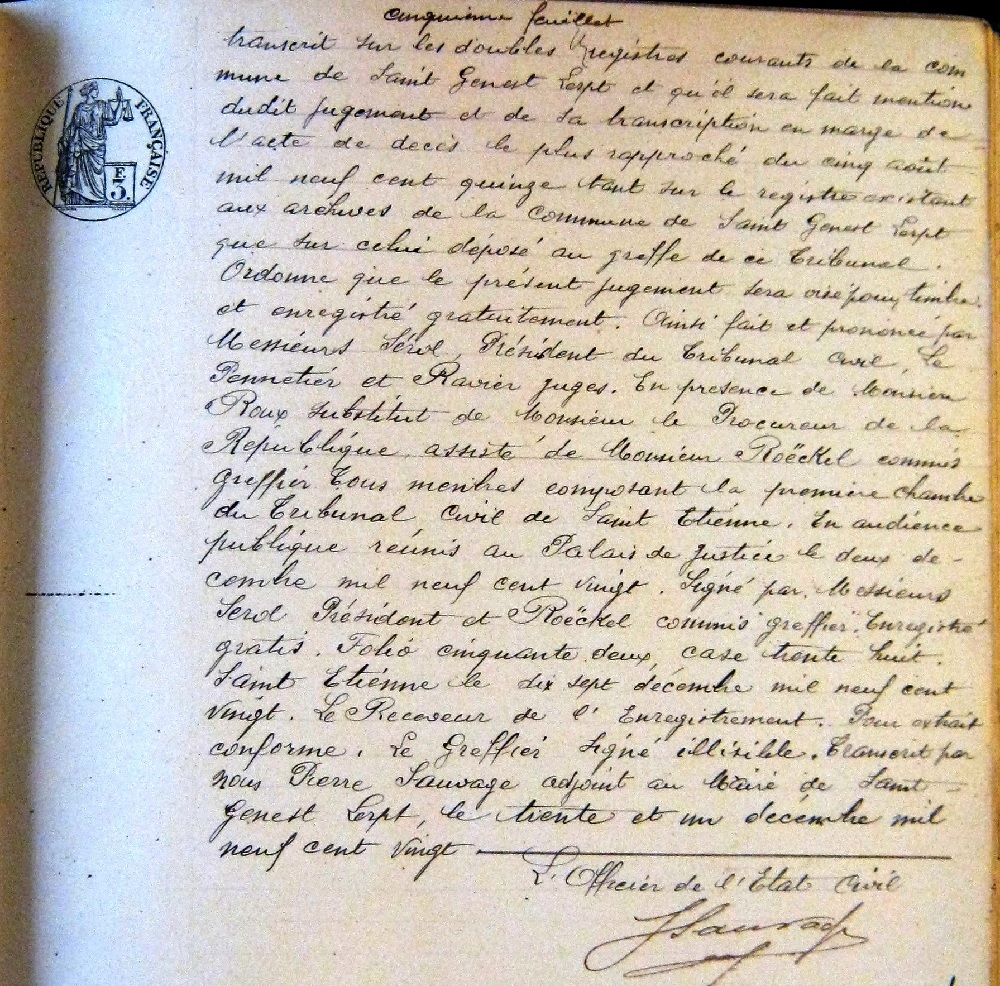 cinquième feuillet
RÉPUBLIQUE FRANÇAISE
E
3.
transcrit sur les doubles registres courants de la com
mune de Saint Genest Lerpt et qu'il sera fait mention
dudit jugement et de sa transcription en marge de
l'acte de decès le plus rapproché du cinq août
mil neuf cent quinze tant sur le registre existant
aux archives de la commune de Saint Genest Lerpt
que sur celui déposé au greffe de ce Tribunal.
Ordonne que le présent jugement sera visé pour timbre
et enregistré gratuitement. Ainsi fait et prononcé par
Messieurs Sérol, Président du Tribunal Civil, Le
Pennetier et Ravier juges. En présence de Monsieur
Roux substitut de Monsieur le Procureur de la
République assisté de Monsieur Roëckel commis
greffier Tous menbres composant la première chambre
du Tribunal Civil de Saint Etienne. En audience
publique réunis au Palais de Justice le deux de-
cembre mil neuf cent vingt. Signé par. Messieurs
Serol Président et Roëckel commis greffier. Enregistré
gratis. Folio cinquante deux, case trente huit.
Saint Etienne le dix sept décembre mil neuf cent
vingt. Le Receveur de l'Enregistrement. Pour extrait
conforme. Le Greffier signé illisible. Transcrit par
nous Pierre Sauvage adjoint au Maire de Saint
Genest Lerpt, le trente et un décembre mil
neuf cent vingt
L'Officier de l'Etat Civil
JSauvage